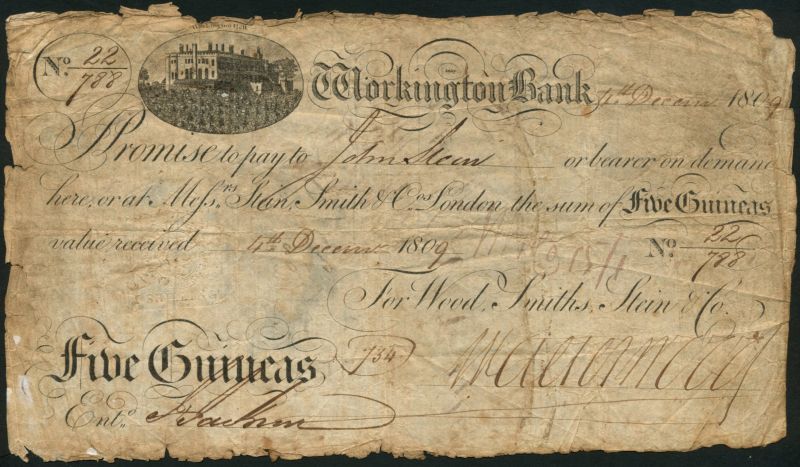 Workington Hall
No. 22/788
Workington Bank 4th Decem 1809
I Promise to pay to John Stein or bearer on demand
here, or at Messrs. Stein, Smith & Cos. London the sum of Five Guineas
value received 4th Decemr 1809 No. 22/788
For Wood, Smiths, Stein & Co.
Five Guineas 734
Entd.